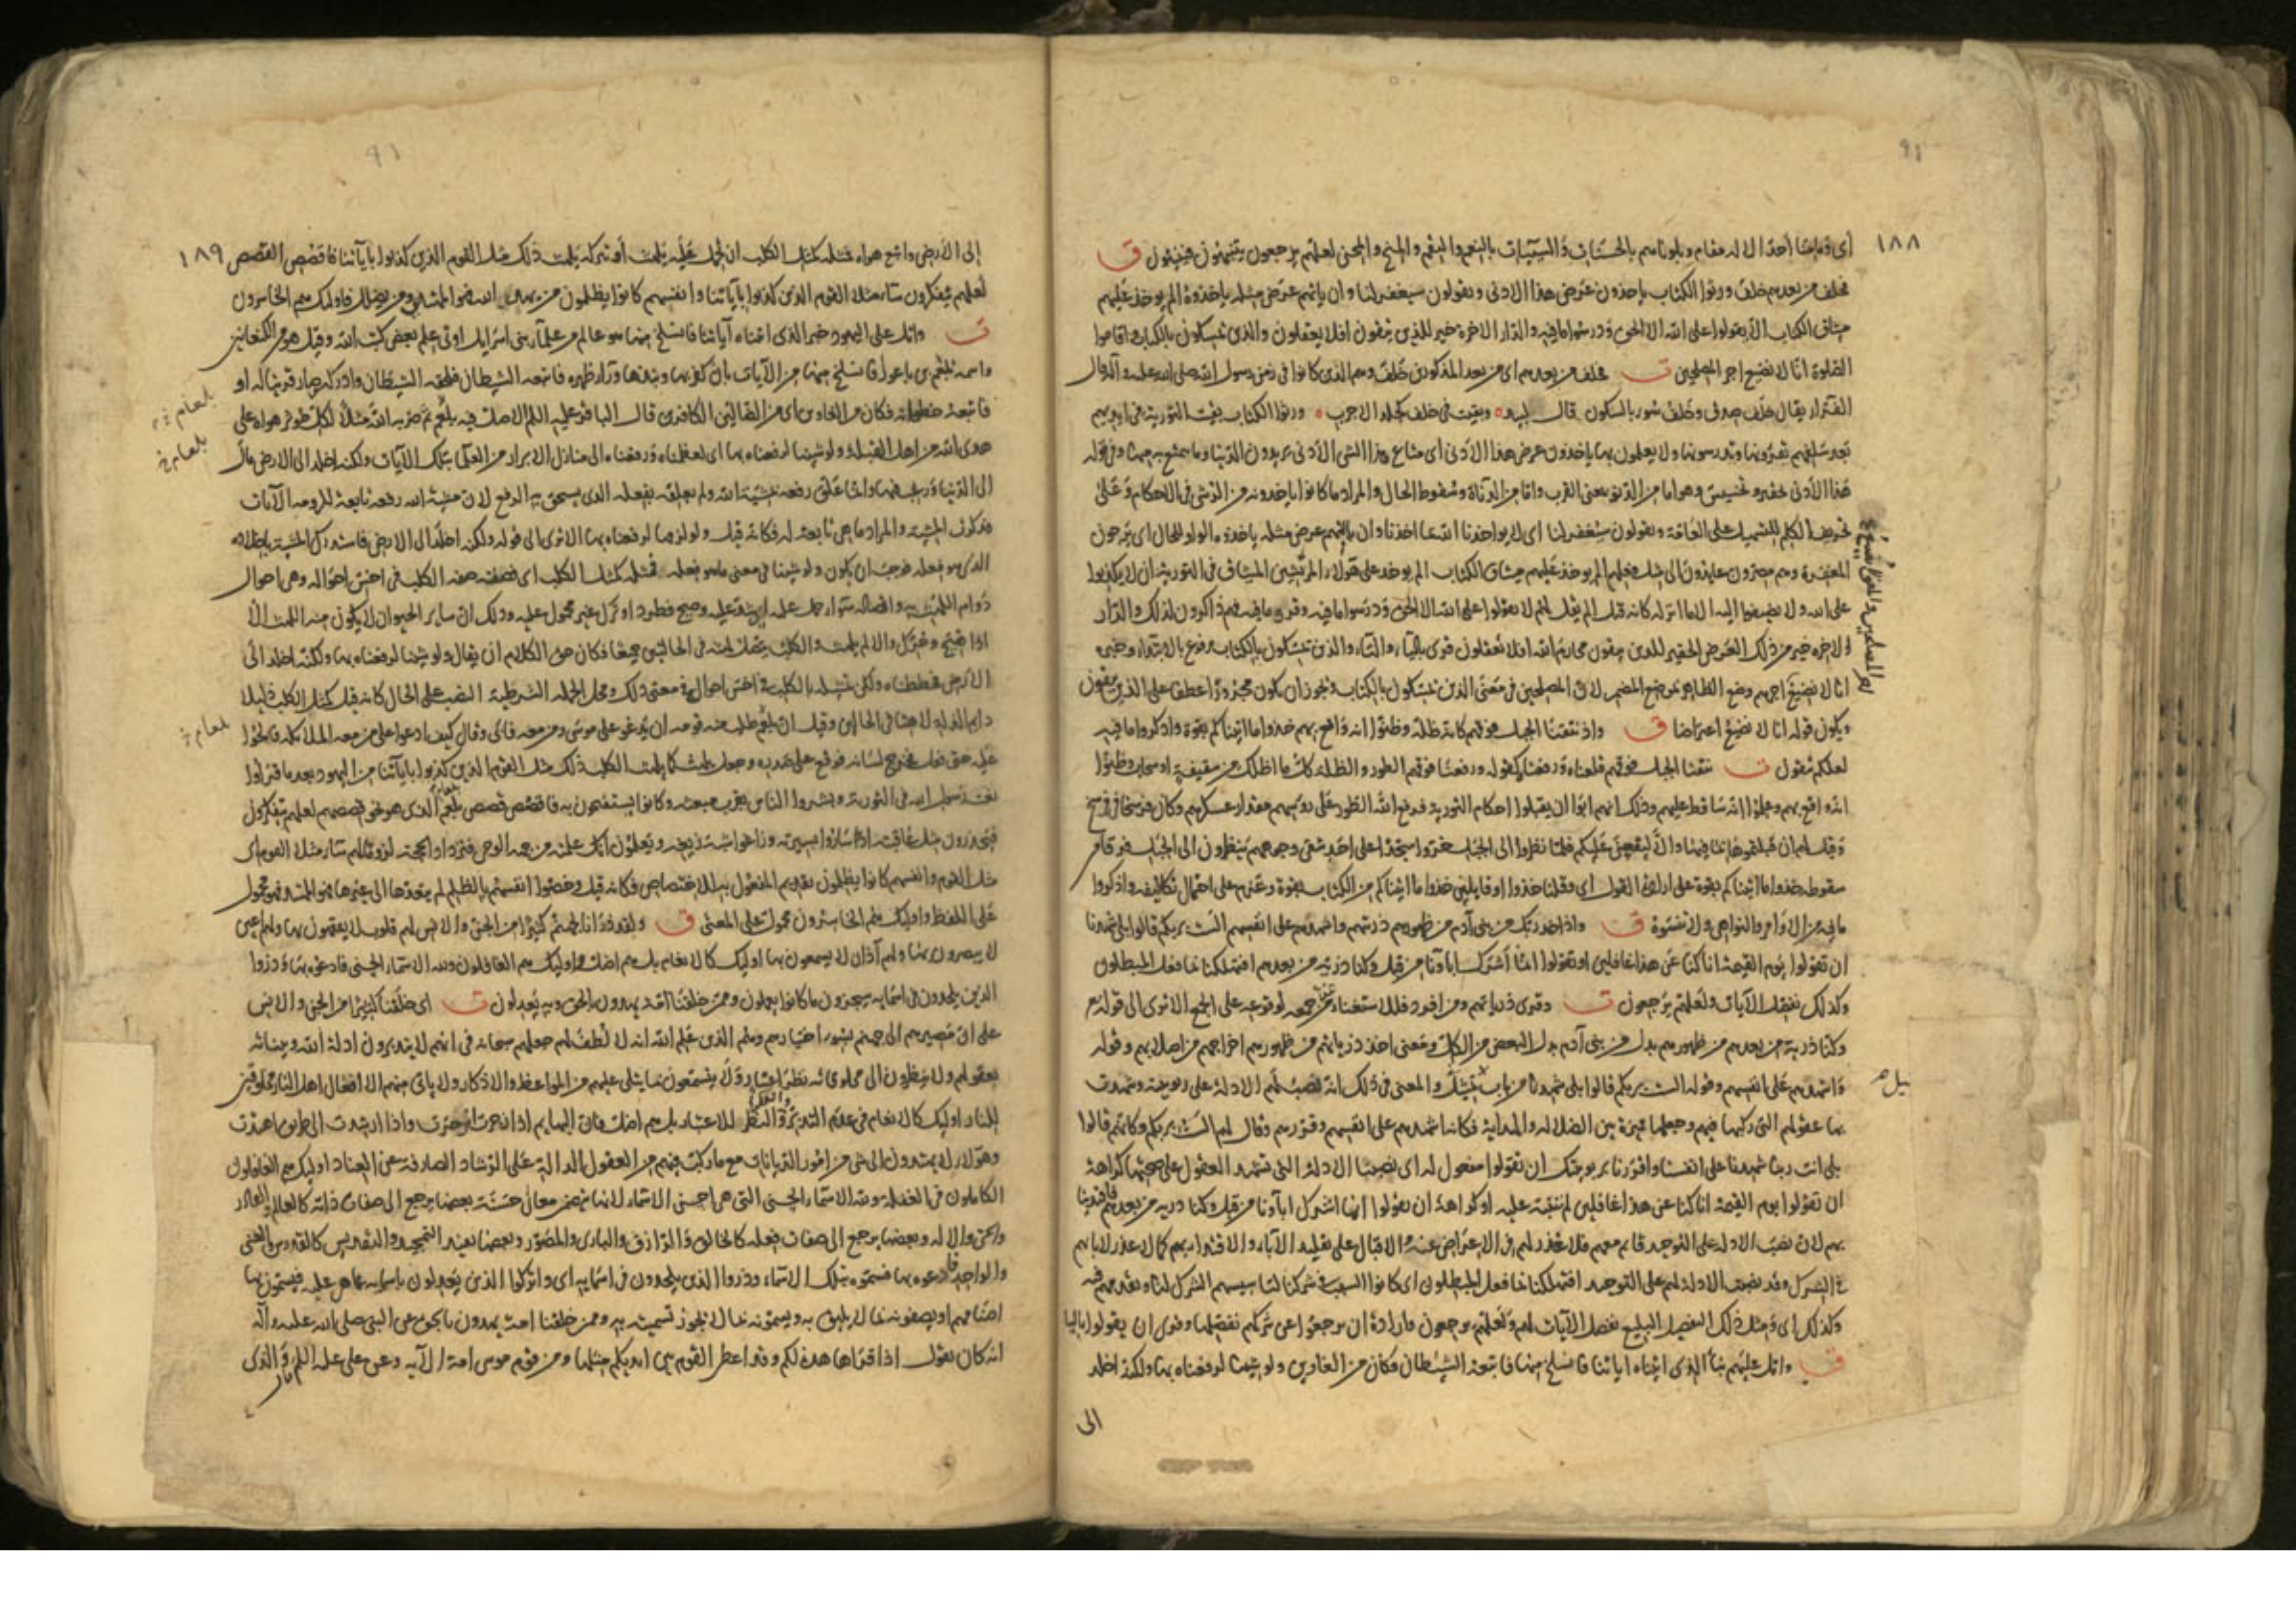 ١٨٨
أى وما منا أحد الا له مقام وبلوناهم بالحسنات والسيئات بالنعم والنقم والمنح والمحن لعلهم يرجعون ينتهون فينيبون ق
فخلف من بعدهم خلف ورثوا الكتاب يأخذون عرض هذا الادنى ويقولون سيغفر لنا وان يأتهم عرض مثله يأخذوه الم يؤخذ عليهم
ميثاق الكتاب الا يقولوا على الله الا الحق ودرسوا ما فيه والدار الاخرة خير للذين يتقون افلا يعقلون والذين يمسكون بالكتاب واقاموا
الصلوة انا لا نضيع اجر المصلحين ت فخلف من بعدهم اى من بعد المذكورين خلف وهم الذين كانوا فى زمن رسول الله صلى الله عليه وآله وال
يقال خلف صدق وخلف سوء بالسكون قال لبيد وبقيت فى خلف كجلد الاجرب ورثوا الكتاب بقيت التورية فى ايديهم
بعد سلفهم يقرؤنها ويدرسونها ولا يعملون بها يأخذون عرض هذا الأدنى اى متاع هذا الشئ الأدنى يريدون الدنيا وما يتمتع به منها وفى قوله
هذا الأدنى تحقير وتخسيس وهو اما من الدنو بمعنى القرب واما من الدناءة وسقوط الحال والمراد ما كانوا يأخذونه من الرشى فى الاحكام وعلى
تحريف الكلم للتسهيل على العامة ويقولون سيغفر لنا اى لا يؤاخذنا الله بما اخذنا وان يأتهم عرض مثله يأخذوه الواو للحال اى يرجون
المغفرة وهم مصرون عايدون الى مثل فعلهم الم يؤخذ عليهم ميثاق الكتاب الم يؤخذ على هؤلاء المرتشين الميثاق فى التورية ان لا يكذبوا
على الله ولا يضيفوا اليه الا ما انزله كانه قيل الم يقل لهم لا تقولوا على الله الا الحق ودرسوا ما فيه وقرؤا ما فيه فهم ذاكرون لذلك والدار
الاخرة خير من ذلك العرض الحقير للذين يتقون محارم الله افلا تعقلون قرئ بالياء والتاء والذين يمسكون بالكتاب مرفوع بالابتداء وخبره
انا لا نضيع اجرهم وضع الظاهر موضع المضمر لان المصلحين فى معنى الذين يمسكون بالكتاب ويجوز ان يكون مجرورا عطفا على الذين يتقون
ويكون قوله انا لا نضيع اعتراضا ق واذ نتقنا الجبل فوقهم كانه ظلة وظنوا انه واقع بهم خذوا ما اتيناكم بقوة واذكروا ما فيه
لعلكم تتقون ت نتقنا الجبل فوقهم قلعناه ورفعناه كقوله ورفعنا فوقهم الطور والظلة كل ما اظلك من سقيفة او سحاب وظنوا
انه واقع بهم وعلموا انه ساقط عليهم وذلك انهم ابوا ان يقبلوا احكام التورية فرفع الله الطور على رؤسهم مقدار عسكرهم وكان فرسخا فى فرسخ
وقيل لهم ان قبلتموها بما فيها والا ليقعن عليكم فلما نظروا الى الجبل خروا سجدا على احد شقى وجوههم ينظرون الى الجبل فرقا من
سقوطه خذوا ما اتيناكم بقوة على ارادة القول اى وقلنا خذوا او قايلين خذوا ما اتيناكم من الكتاب بقوة وعزم على احتمال تكاليفه واذكروا
ما فيه من الاوامر والنواهى ولا تنسوه ق واذ اخذ ربك من بنى آدم من ظهورهم ذريتهم واشهدهم على انفسهم الست بربكم قالوا بلى شهدنا
ان تقولوا يوم القيمة انا كنا عن هذا غافلين او تقولوا انما أشرك اباؤنا من قبل وكنا ذرية من بعدهم افتهلكنا بما فعل المبطلون
وكذلك نفصل الآيات ولعلهم يرجعون ت وقرئ ذرياتهم ومن افرد فللاستغناء عن جمعه لوقوعه على الجمع الا ترى الى قولهم
وكنا ذرية من بعدهم من ظهورهم بدل من بنى آدم بدل البعض من الكل ومعنى اخذ ذرياتهم من ظهورهم اخراجهم من اصلابهم وقوله
واشهدهم على انفسهم وقوله الست بربكم قالوا بلى شهدنا من باب التمثيل والمعنى فى ذلك انه نصب لهم الادلة على ربوبيته وشهدت
بها عقولهم التى ركبها فيهم وجعلها مميزة بين الضلالة والهداية فكانه اشهدهم على انفسهم وقررهم وقال لهم الست بربكم وكانهم قالوا
بلى انت ربنا شهدنا على انفسنا واقررنا بربوبيتك ان تقولوا مفعول له اى نصبنا الادلة التى تشهد العقول على صحتها كراهة
ان تقولوا يوم القيمة انا كنا عن هذا غافلين لم ننبه عليه او كراهة ان تقولوا انما اشرك اباؤنا من قبل وكنا ذرية من بعدهم فاقتدينا
بهم لان نصب الادلة على التوحيد قايم معهم فلا عذر لهم فى الاعراض عنه والاقبال على تقليد الآباء والاقتداء بهم كما لا عذر لابايهم
فى الشرك وقد نصبت الادلة لهم على التوحيد افتهلكنا بما فعل المبطلون اى كانوا السبب فى شركنا لتاسيسهم الشرك لنا وتقدمهم فيه
وكذلك اى ومثل ذلك التفصيل البليغ نفصل الآيات لهم ولعلهم يرجعون وارادة ان يرجعوا عن شركهم نفصلها وقرئ ان يقولوا بالياء
ق واتل عليهم نبأ الذى اتيناه اياتنا فانسلخ منها فاتبعه الشيطان فكان من الغاوين ولو شئنا لرفعناه بها ولكنه اخلد
الى
١٨٩
إلى الأرض واتبع هواه فمثله كمثل الكلب ان تحمل عليه يلهث أو تتركه يلهث ذلك مثل القوم الذين كذبوا بآياتنا فاقصص القصص
لعلهم يتفكرون ساء مثلا القوم الذين كذبوا بآياتنا وانفسهم كانوا يظلمون من يهدى الله فهو المهتدى ومن يضلل فاولئك هم الخاسرون
ت واتل على اليهود خبر الذى اتيناه آياتنا فانسلخ منها هو عالم من علماء بنى اسرائيل اوتى علم بعض كتب الله وقيل هو من الكنعانيين
واسمه بلعم بن باعورا فانسلخ منها من الآيات بان كفر بها ونبذها وراء ظهره فاتبعه الشيطان فلحقه الشيطان وادركه وصار قرينا له او
فاتبعه خطواته فكان من الغاوين اى من الضالين الكافرين قال الباقر عليه السلم الاصل فيه بلعم ثم ضربه الله مثلا لكل مؤثر هواه على
هدى الله من اهل القبلة ولو شئنا لرفعناه بها اى لعظمناه ورفعناه الى منازل الابرار من العلماء بتلك الآيات ولكنه اخلد الى الارض مال
الى الدنيا ورغب فيها وانما علق رفعه بمشية الله ولم يعلقه بفعله الذى يستحق به الرفع لان مشية الله رفعه تابعة للزومه الآيات
فذكرت المشية والمراد ما هى تابعة له فكانه قيل ولو لزمها لرفعناه بها الا ترى الى قوله ولكنه اخلد الى الارض فاستدرك المشية باخلاده
الذى هو فعله فوجب ان يكون ولو شئنا فى معنى ما هو فعله فمثله كمثل الكلب اى فصفته صفة الكلب فى اخس احواله وهى احوال
دوام اللهث به واتصاله سواء حمل عليه اى شد عليه وهيج فطرد او ترك غير محمول عليه وذلك ان ساير الحيوان لا يكون منه اللهث الا
اذا هيج وحرك والا لم يلهث والكلب يتصل لهثه فى الحالتين جميعا فكان حق الكلام ان يقال ولو شئنا لرفعناه بها ولكنه اخلد الى
الأرض فحططناه ولكن تمثيله بالكلب فى اخس احواله فى معنى ذلك ومحل الجملة الشرطية النصب على الحال كانه قيل كمثل الكلب ذليلا
دايم الذلة لاهثا فى الحالين وقيل ان بلعم طلب منه قومه ان يدعو على موسى ومن معه فابى وقال كيف ادعو على من معه الملائكة فالحوا
عليه حتى فعل فخرج لسانه فوقع على صدره وجعل يلهث كما يلهث الكلب ذلك مثل القوم الذين كذبوا بآياتنا من اليهود بعد ما قرأوا
نعت رسول الله فى التورية وبشروا الناس بقرب مبعثه وكانوا يستفتحون به فاقصص قصص بلعم الذى هو نحو قصصهم لعلهم يتفكرون
فيحذرون مثل عاقبته اذا ساروا بسيرته وزاغوا شبه زيغه ويعلمون انك علمته من جهة الوحى فتزداد الحجة لزوما لهم ساء مثلا القوم اى
مثل القوم وانفسهم كانوا يظلمون تقديم المفعول به للاختصاص فكانه قيل وخصوا انفسهم بالظلم لم يتعدها الى غيرها فهو المهتدى محمول
على اللفظ واوليك هم الخاسرون محمول على المعنى ق ولقد ذرأنا لجهنم كثيرا من الجن والانس لهم قلوب لا يفقهون بها ولهم اعين
لا يبصرون بها ولهم آذان لا يسمعون بها اوليك كالانعام بل هم اضل اوليك هم الغافلون ولله الاسماء الحسنى فادعوه بها وذروا
الذين يلحدون فى اسمايه سيجزون ما كانوا يعملون وممن خلقنا امة يهدون بالحق وبه يعدلون ت اى خلقنا كثيرا من الجن والانس
على ان مصيرهم الى جهنم بسوء اختيارهم وهم الذين علم الله انه لا لطف لهم جعلهم سبحانه فى انهم لا يتدبرون ادلة الله وبيناته
بعقولهم ولا ينظرون الى مخلوقاته نظر اعتبار ولا يسمعون ما يتلى عليهم من المواعظ والاذكار ولا ياتى منهم الا افعال اهل النار مخلوقين
للنار اوليك كالانعام فى عدم التدبر والنظر للاعتبار بل هم اضل فان البهايم اذا زجرت انزجرت واذا ارشدت الى طريق اهتدت
وهؤلاء لا يهتدون الى شئ من امور الديانات مع ما ركبت فيهم من العقول الدالة على الرشاد الصارفة عن العناد اوليك هم الغافلون
الكاملون فى الغفلة ولله الاسماء الحسنى التى هى احسن الاسماء لانها تتضمن معانى حسنة بعضها يرجع الى صفات ذاته كالعالم والقادر
والحى والاله وبعضها يرجع الى صفات فعله كالخالق والرازق والبارى والمصور وبعضها يفيد التمجيد والتقديس كالقدوس والغنى
والواحد فادعوه بها فسموه بتلك الاسماء وذروا الذين يلحدون فى اسمايه اى واتركوا الذين يعدلون باسمائه عما هى عليه فيسمون بها
اصنامهم او يصفونه بما لا يليق به ويسمونه بما لا يجوز تسميته به وممن خلقنا امة يهدون بالحق عن النبى صلى الله عليه وآله
انه كان يقول اذا قرأها هذه لكم وقد اعطى القوم بين ايديكم مثلها ومن قوم موسى امة الآية وعن على عليه السلم والذى